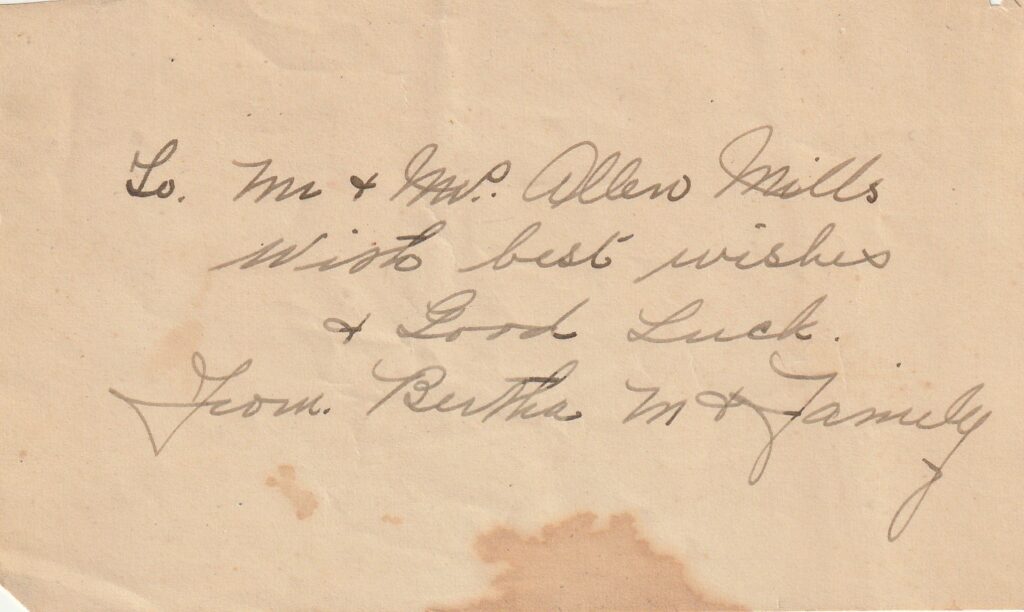 To. Mr & Mrs. Allen Mills
With best wishes
& Good Luck.
From. Bertha M & Family